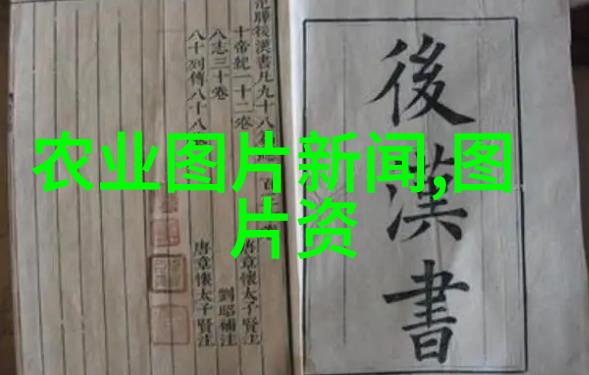 农业图片新闻,图
片资
後漢書
後漢書凡九十八
十帝紀一十二卷 唐章懷太子賢注
八志三十卷 劉昭補注
八十列傳八十八 唐章懷太子賢注